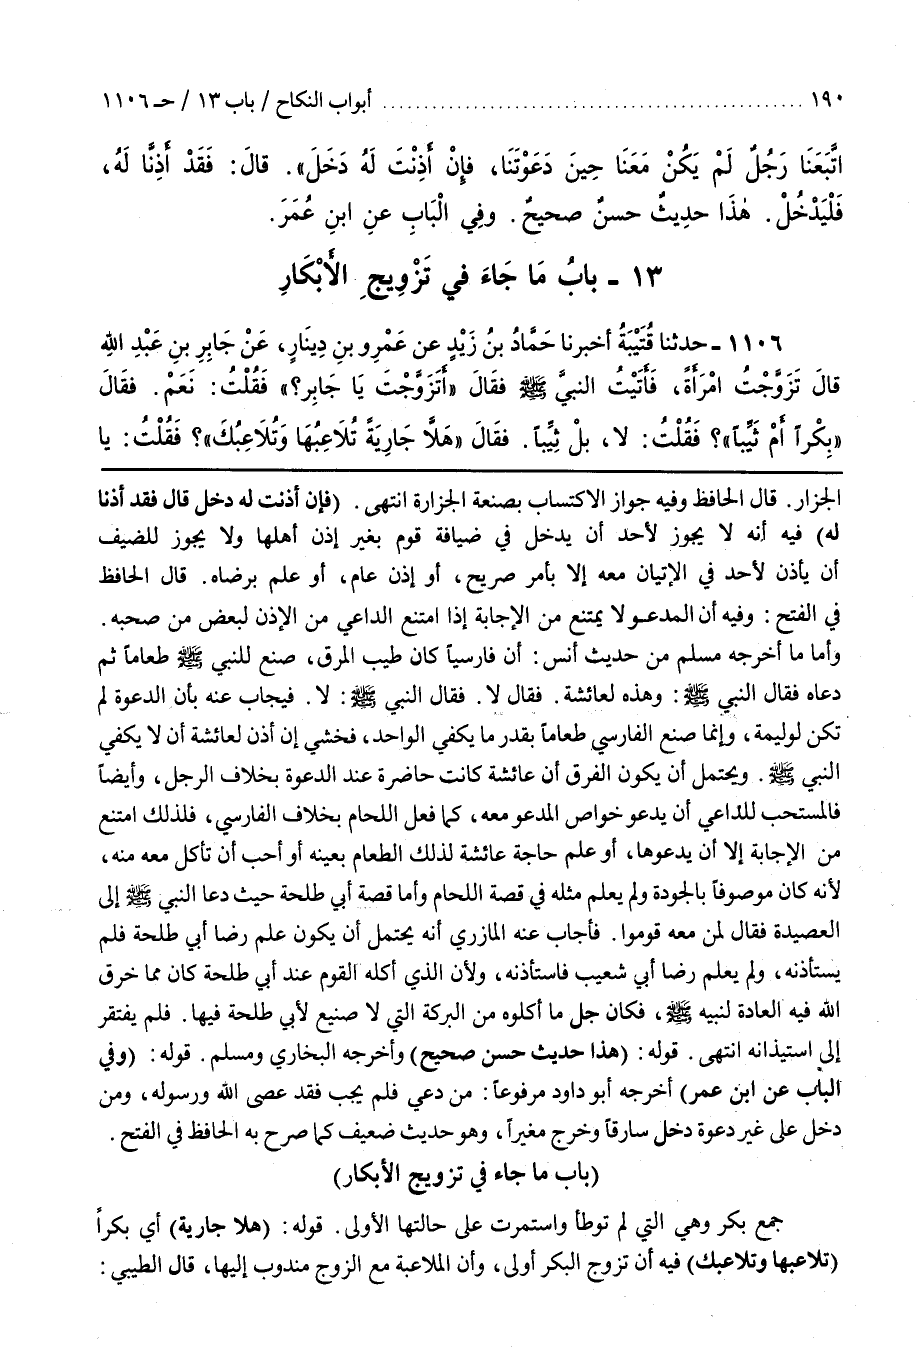 ١٩٠ ................................................ أبواب النكاح / باب ١٣ / حـ ١١٠٦
اتَّبَعَنَا رَجُلٌ لَمْ يَكُنْ مَعَنَا حِينَ دَعَوْتَنَا، فإِنْ أَذِنْتَ لَهُ دَخَلَ». قالَ: فَقَدْ أَذِنَّا لَهُ،
فَلْيَدْخُلْ. هٰذَا حديثٌ حسنٌ صحيحٌ. وفِي الْبَابِ عنِ ابنِ عُمَرَ.
١٣ - بابُ مَا جَاءَ في تَزْوِيجِ الأَبْكَارِ
١١٠٦ - حدثنا قُتَيْبَةُ أخبرنا حَمَّادُ بنُ زَيْدٍ عن عَمْرِو بنِ دِينَارٍ، عَنْ جَابِرِ بنِ عَبْدِ اللهِ
قالَ تَزَوَّجْتُ امْرَأَةً، فَأَتَيْتُ النبيَّ ﷺ فقالَ «أَتَزَوَّجْتَ يَا جَابِرُ؟» فَقُلْتُ: نَعَمْ. فقالَ
«بِكْراً أَمْ ثَيِّباً»؟ فَقُلْتُ: لا، بلْ ثيِّباً. فقالَ «هَلَّا جَارِيَةً تُلَاعِبُهَا وَتُلَاعِبُكَ»؟ فَقُلْتُ: يا
الجزار. قال الحافظ وفيه جواز الاكتساب بصنعة الجزارة انتهى. (فإن أذنت له دخل قال فقد أذنا
له) فيه أنه لا يجوز لأحد أن يدخل في ضيافة قوم بغير إذن أهلها ولا يجوز للضيف
أن يأذن لأحد في الإتيان معه إلا بأمر صريح، أو إذن عام، أو علم برضاه. قال الحافظ
في الفتح: وفيه أن المدعو لا يمتنع من الإجابة إذا امتنع الداعي من الإذن لبعض من صحبه.
وأما ما أخرجه مسلم من حديث أنس: أن فارسياً كان طيب المرق، صنع للنبي ﷺ طعاماً ثم
دعاه فقال النبي ﷺ: وهذه لعائشة. فقال لا. فقال النبي ﷺ: لا. فيجاب عنه بأن الدعوة لم
تكن لوليمة، وإنما صنع الفارسي طعاماً بقدر ما يكفي الواحد، فخشي إن أذن لعائشة أن لا يكفي
النبي ﷺ. ويحتمل أن يكون الفرق أن عائشة كانت حاضرة عند الدعوة بخلاف الرجل، وأيضاً
فالمستحب للداعي أن يدعو خواص المدعو معه، كما فعل اللحام بخلاف الفارسي، فلذلك امتنع
من الإجابة إلا أن يدعوها، أو علم حاجة عائشة لذلك الطعام بعينه أو أحب أن تأكل معه منه،
لأنه كان موصوفاً بالجودة ولم يعلم مثله في قصة اللحام وأما قصة أبي طلحة حيث دعا النبي ﷺ إلى
العصيدة فقال لمن معه قوموا. فأجاب عنه المازري أنه يحتمل أن يكون علم رضا أبي طلحة فلم
يستأذنه، ولم يعلم رضا أبي شعيب فاستأذنه، ولأن الذي أكله القوم عند أبي طلحة كان مما خرق
الله فيه العادة لنبيه ﷺ، فكان جل ما أكلوه من البركة التي لا صنيع لأبي طلحة فيها. فلم يفتقر
إلى استيذانه انتهى. قوله: (هذا حديث حسن صحيح) وأخرجه البخاري ومسلم. قوله: (وفي
الباب عن ابن عمر) أخرجه أبو داود مرفوعاً: من دعي فلم يجب فقد عصى الله ورسوله، ومن
دخل على غير دعوة دخل سارقاً وخرج مغيراً، وهو حديث ضعيف كما صرح به الحافظ في الفتح.
(باب ما جاء في تزويج الأبكار)
جمع بكر وهي التي لم توطأ واستمرت على حالتها الأولى. قوله: (هلا جارية) أي بكراً
(تلاعبها وتلاعبك) فيه أن تزوج البكر أولى، وأن الملاعبة مع الزوج مندوب إليها، قال الطيبي: